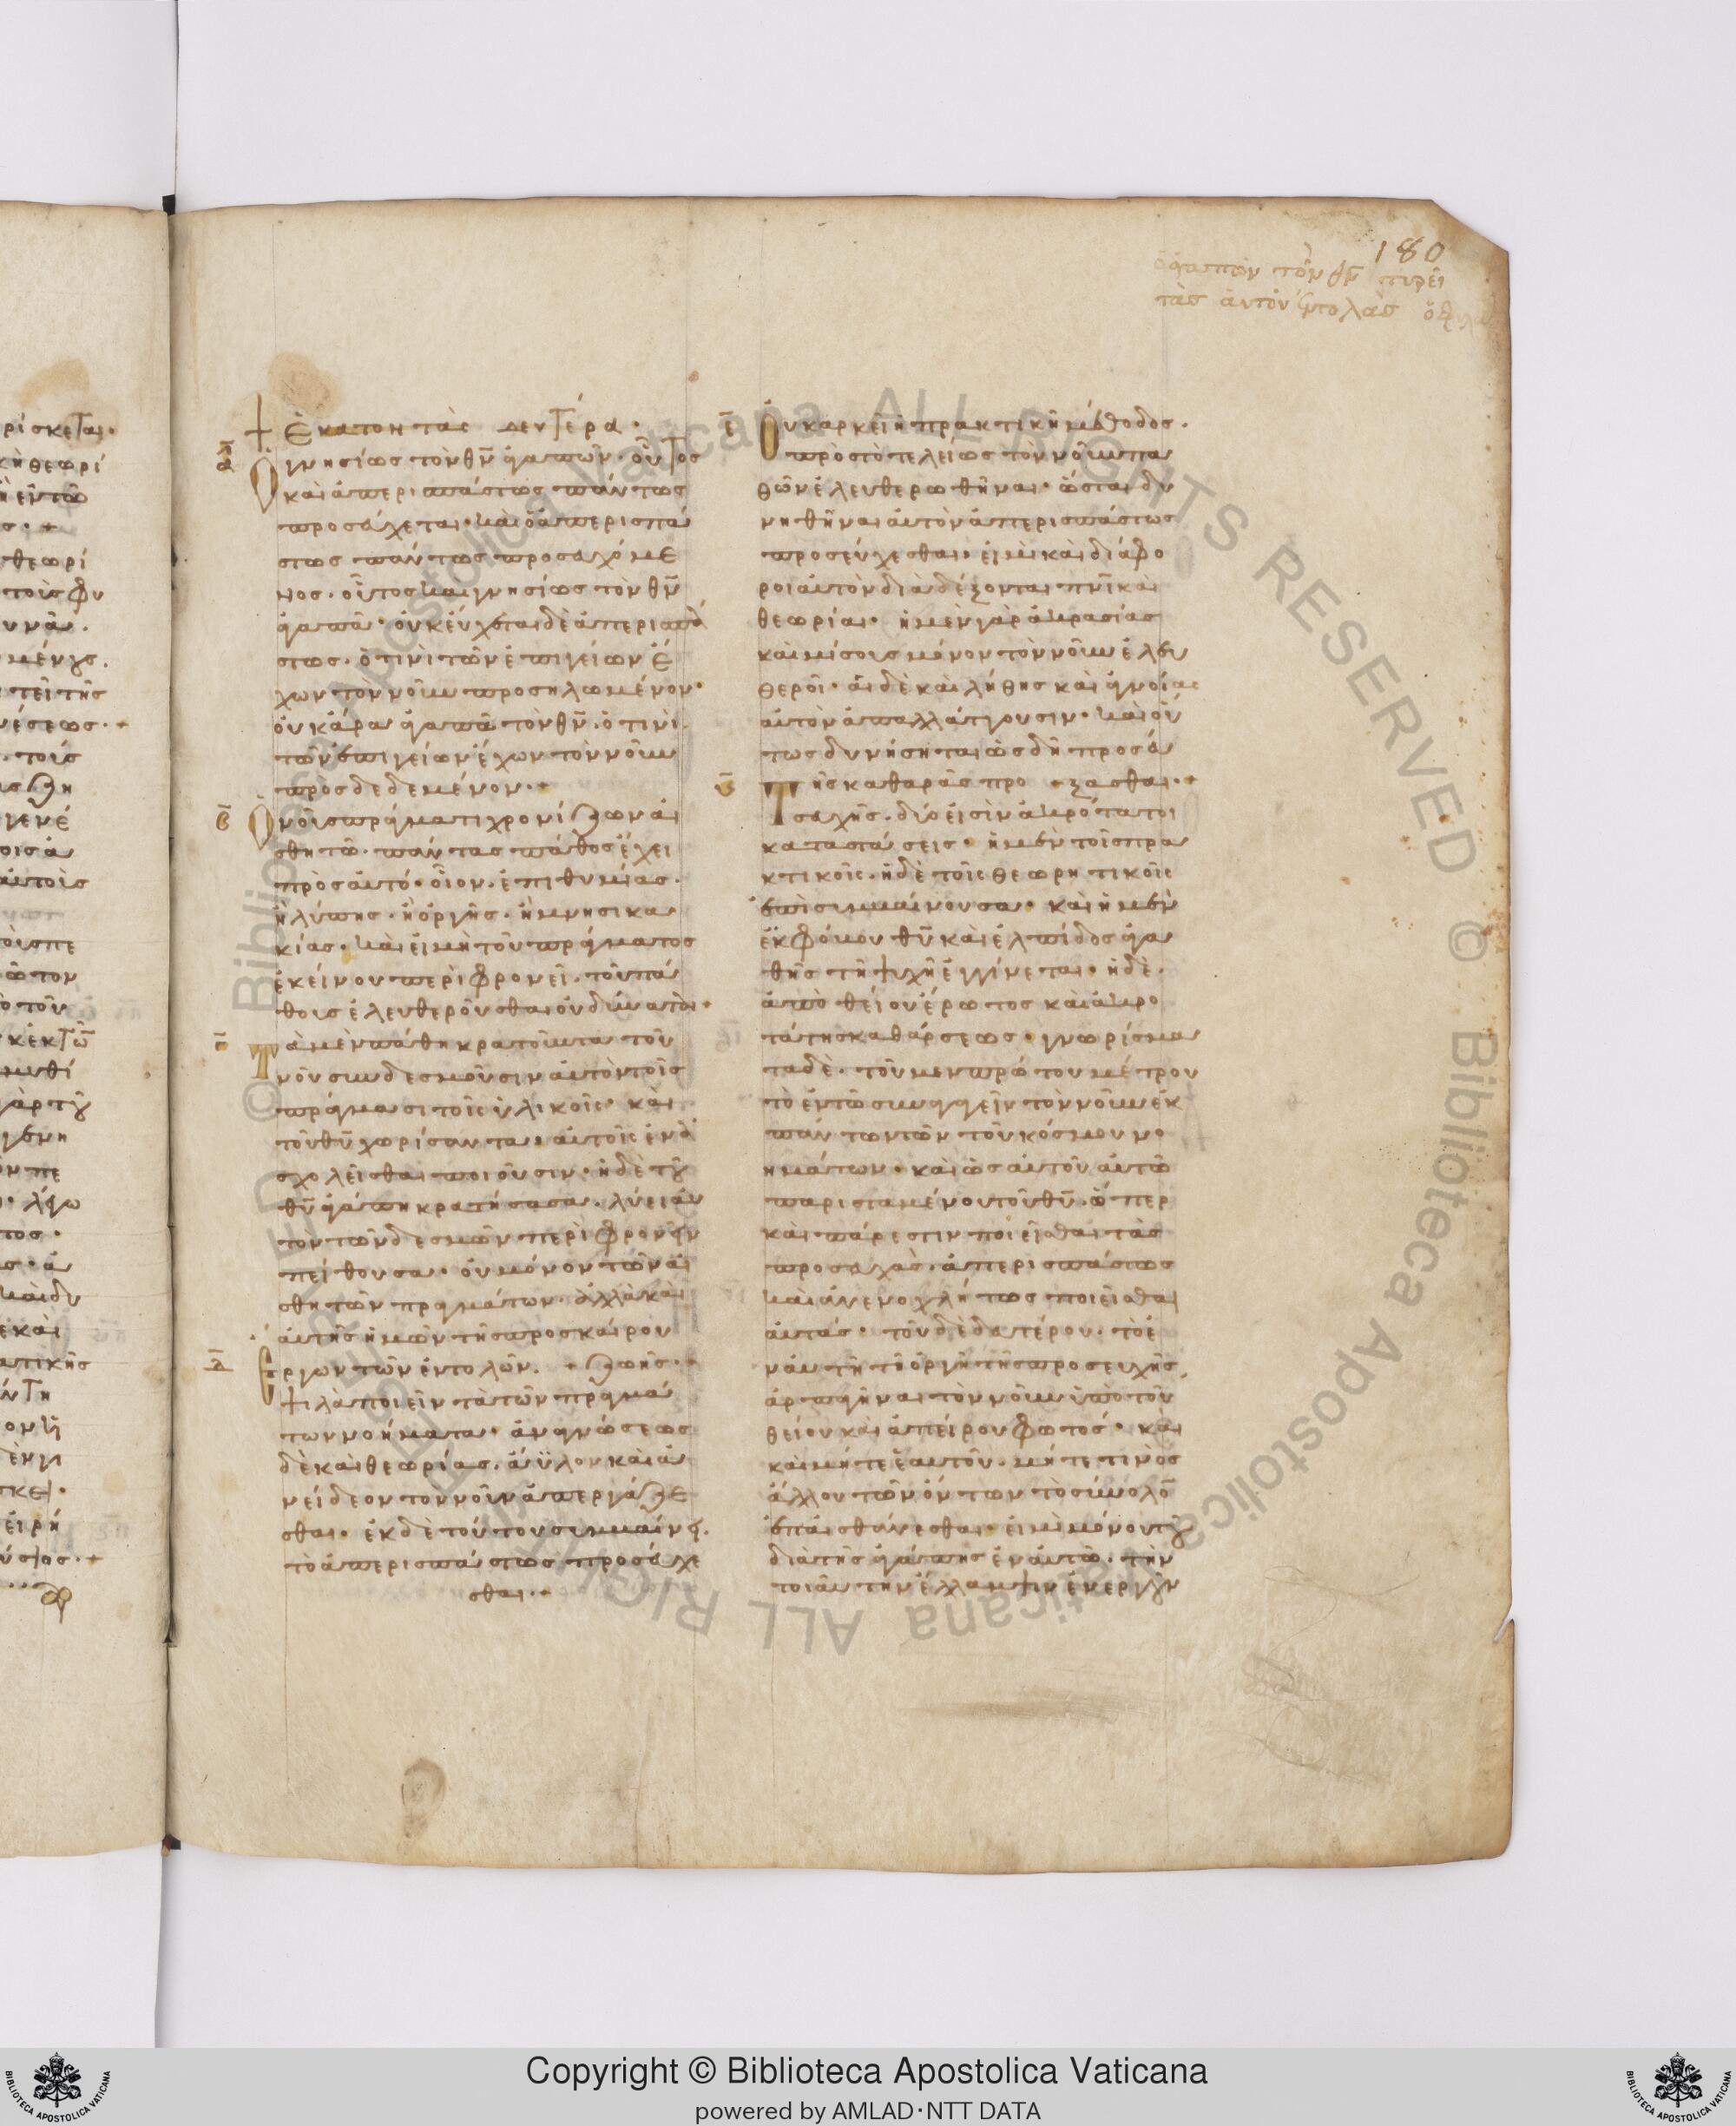 180
ὁ ἀγαπῶν τὸν θ̅ν̅ τηρεῖ
τὰς αὐτοῦ ἐντολὰς
ρίσκεται·
κὴ θεωρί
ἢ ἐν τῶ
θεωρί
τοῖς φυ
τεῖ τῆς
νέσεως·+
τοῖς
γενέ
αὐτοῖς
ατικῆς
ειρή
Ἑκατοντὰς δευτέρα·
α̅
Ὁ γνησίως τὸν θ̅ν̅ ἀγαπῶν· οὗτος
καὶ ἀπερισπάστως πάντως
προσεύχεται· καὶ ὁ ἀπερισπά
στως πάντως προσευχόμε
νος· οὗτος καὶ γνησίως τὸν θ̅ν̅
ἀγαπᾶ· οὐκ εὔχεται δὲ ἀπερισπά
στως· ὁ τινὶ τῶν ἐπιγείων ἔ
χων τὸν νοῦν προσηλωμένον·
οὐκ ἄρα ἀγαπᾶ τὸν θ̅ν̅· ὁ τινὶ
τῶν ἐπιγείων ἔχων τὸν νοῦν
προσδεδεμένον·+
β̅
Ὁ νοῦς πράγματι χρονίζων αἰ
σθητῶ· πάντως πάθος ἔχει
πρὸς αὐτό· οἷον· ἐπιθυμίας·
ἢ λύπης· ἢ ὀργῆς· ἢ μνησικα
κίας· καὶ εἰ μὴ τοῦ πράγματος
ἐκείνου περιφρονεῖ· τοῦ πά
θους ἐλευθεροῦσθαι οὐ δύναται+
γ̅
Τὰ μὲν πάθη κρατοῦντα τοῦ
νοῦ συνδεσμοῦσιν αὐτὸν τοῖς
πράγμασι τοῖς ὑλικοῖς· καὶ
τοῦ θ̅υ̅ χωρίσαντα· αὐτοῖς ἐνα
σχολεῖσθαι ποιοῦσιν· ἡ δὲ τοῦ
θ̅υ̅ ἀγάπη κρατήσασα· λύει αὐ
τὸν τῶν δεσμῶν περιφρονεῖν
πείθουσα· οὐ μόνον τῶν αἰ
σθητῶν πραγμάτων· ἀλλὰ καὶ
αὐτῆς ἡμῶν τῆς προσκαίρου
δ̅
Ἔργων τῶν ἐντολῶν· +ζωῆς·+
ψιλὰ ποιεῖν τὰ τῶν πραγμά
των νοήματα· ἀναγνώσεως
δὲ καὶ θεωρίας· ἄϋλον καὶ ἀ
νείδεον τὸν νοῦν ἀπεργάζε
σθαι· ἐκ δὲ τούτου συμβαίνει·
τὸ ἀπερισπάστως προσεύχε
σθαι·+
ε̅
Οὐκ ἀρκεῖ ἡ πρακτικὴ μέθοδος·
πρὸς τὸ τελείως τὸν νοῦν πα
θῶν ἐλευθερωθῆναι· ὥστε δυ
νηθῆναι αὐτὸν ἀπερισπάστως
προσεύχεσθαι· εἰ μὴ καὶ διάφο
ροι αὐτὸν διαδέξονται πν̅ικαὶ
θεωρίαι· ἡ μὲν γὰρ ἀκρασίας
καὶ μίσους μόνον τὸν νοῦν ἐλευ
θεροῖ· αἱ δὲ καὶ λήθης καὶ ἀγνοίας
αὐτὸν ἀπαλλάττουσιν· καὶ οὕ
τως δυνήσηται ὡς δεῖ προσεύ
ς̅
Τῆς καθαρᾶς προ +ξασθαι·+
σευχῆς· δύο εἰσὶν ἀκρόταται
καταστάσεις· ἡ μὲν τοῖς πρα
κτικοῖς· ἡ δὲ τοῖς θεωρητικοῖς
ἐπισυμβαίνουσα· καὶ ἡ μὲν
ἐκ φόβου θ̅υ̅ καὶ ἐλπίδος ἀγα
θῆς τῆ ψυχῆ ἐγγίνεται· ἡ δὲ·
ἀπὸ θείου ἔρωτος καὶ ἀκρο
τάτης καθάρσεως· γνωρίσμα
τα δὲ· τοῦ μὲν πρώτου μέτρου
τὸ ἐν τῶ συναγαγεῖν τὸν νοῦν ἐκ
πάντων τῶν τοῦ κόσμου νο
ημάτων· καὶ ὡς αὐτοῦ αὐτῶ
παρισταμένου τοῦ θ̅υ̅· ὥσπερ
καὶ πάρεστιν ποιεῖσθαι τὰς
προσευχὰς· ἀπερισπάστως
καὶ ἀνενοχλήτως ποιεῖσθαι
αὐτάς· τοῦ δὲ δευτέρου· τὸ ἐ
ν αὐτῆ τῆ ὁρμῆ τῆς προσευχῆς
ἁρπαγῆναι τὸν νοῦν ὑπὸ τοῦ
θείου καὶ ἀπείρου φωτός· καὶ
καὶ μήτε ἑαυτοῦ· μήτε τινὸς
ἄλλου τῶν ὄντων τὸ σύνολο̅
ἐπαισθάνεσθαι· εἰ μὴ μόνου τοῦ
διὰ τῆς ἀγάπης ἐν αὐτῶ· τὴν
τοιαύτην ἔλλαμψιν ἐνεργοῦν
© Biblioteca Apostolica Vaticana ALL RIGHTS RESERVED © Biblioteca Apostolica Vaticana ALL RIGHTS RESERVED
BIBLIOTECA APOSTOLICA VATICANA
Copyright © Biblioteca Apostolica Vaticana
powered by AMLAD·NTT DATA
BIBLIOTECA APOSTOLICA VATICANA